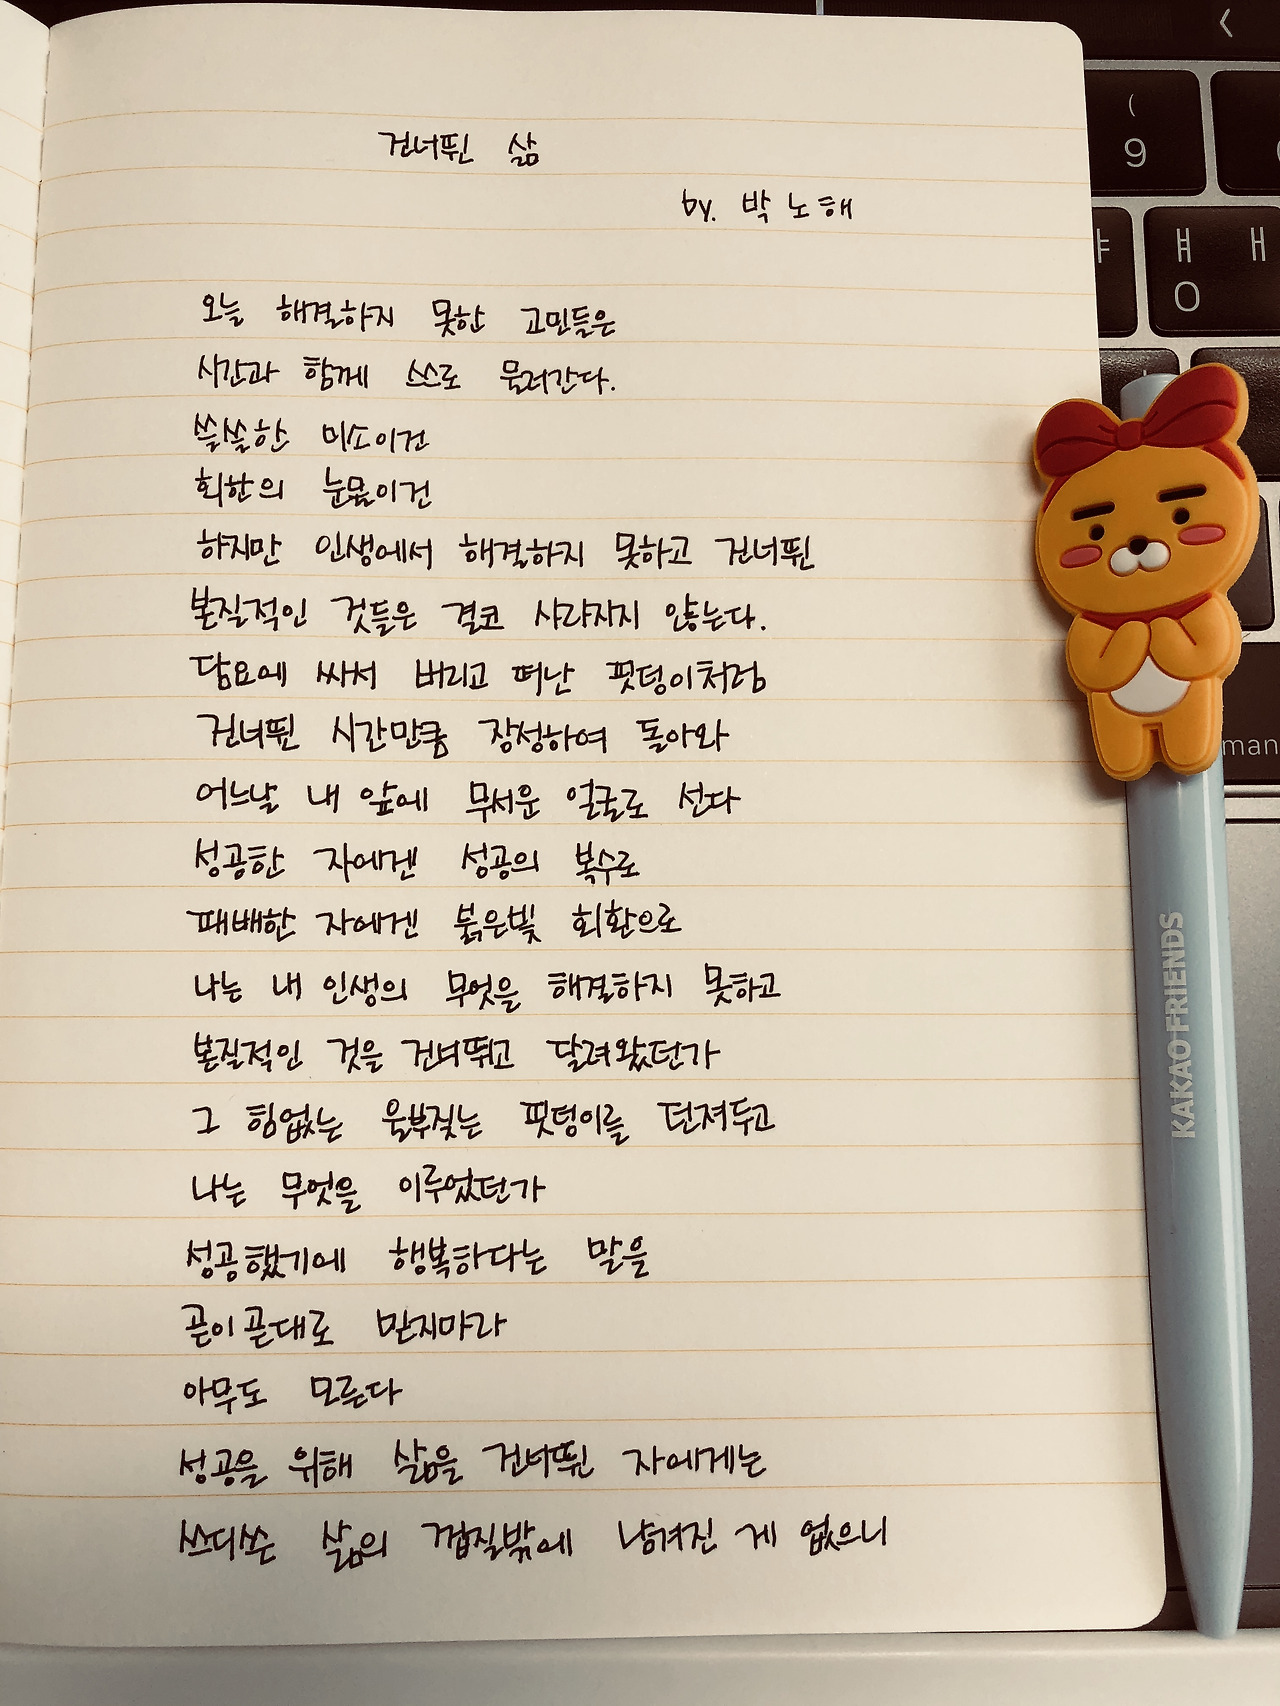 건너뛴 삶
by. 박노해
오늘 해결하지 못한 고민들은
시간과 함께 쓰로 물러간다.
쓸쓸한 미소이건
회한의 눈물이건
하지만 인생에서 해결하지 못하고 건너뛴
본질적인 것들은 결코 사라지지 않는다.
담요에 싸서 버리고 떠난 핏덩이처럼
건너뛴 시간만큼 장성하여 돌아와
어느날 내 앞에 무서운 얼굴로 선다
성공한 자에겐 성공의 복수로
패배한 자에겐 붉은빛 회환으로
나는 내 인생의 무엇을 해결하지 못하고
본질적인 것을 건너뛰고 달려왔던가
그 힘없는 울부짖는 핏덩이를 던져두고
나는 무엇을 이루었던가
성공했기에 행복하다는 말을
곧이곧대로 믿지마라
아무도 모른다
성공을 위해 삶을 건너뛴 자에게는
쓰디쓴 삶의 껍질밖에 남겨진 게 없으니
KAKAO FRIENDS
(
9
ㅖ ㅐ
O
man